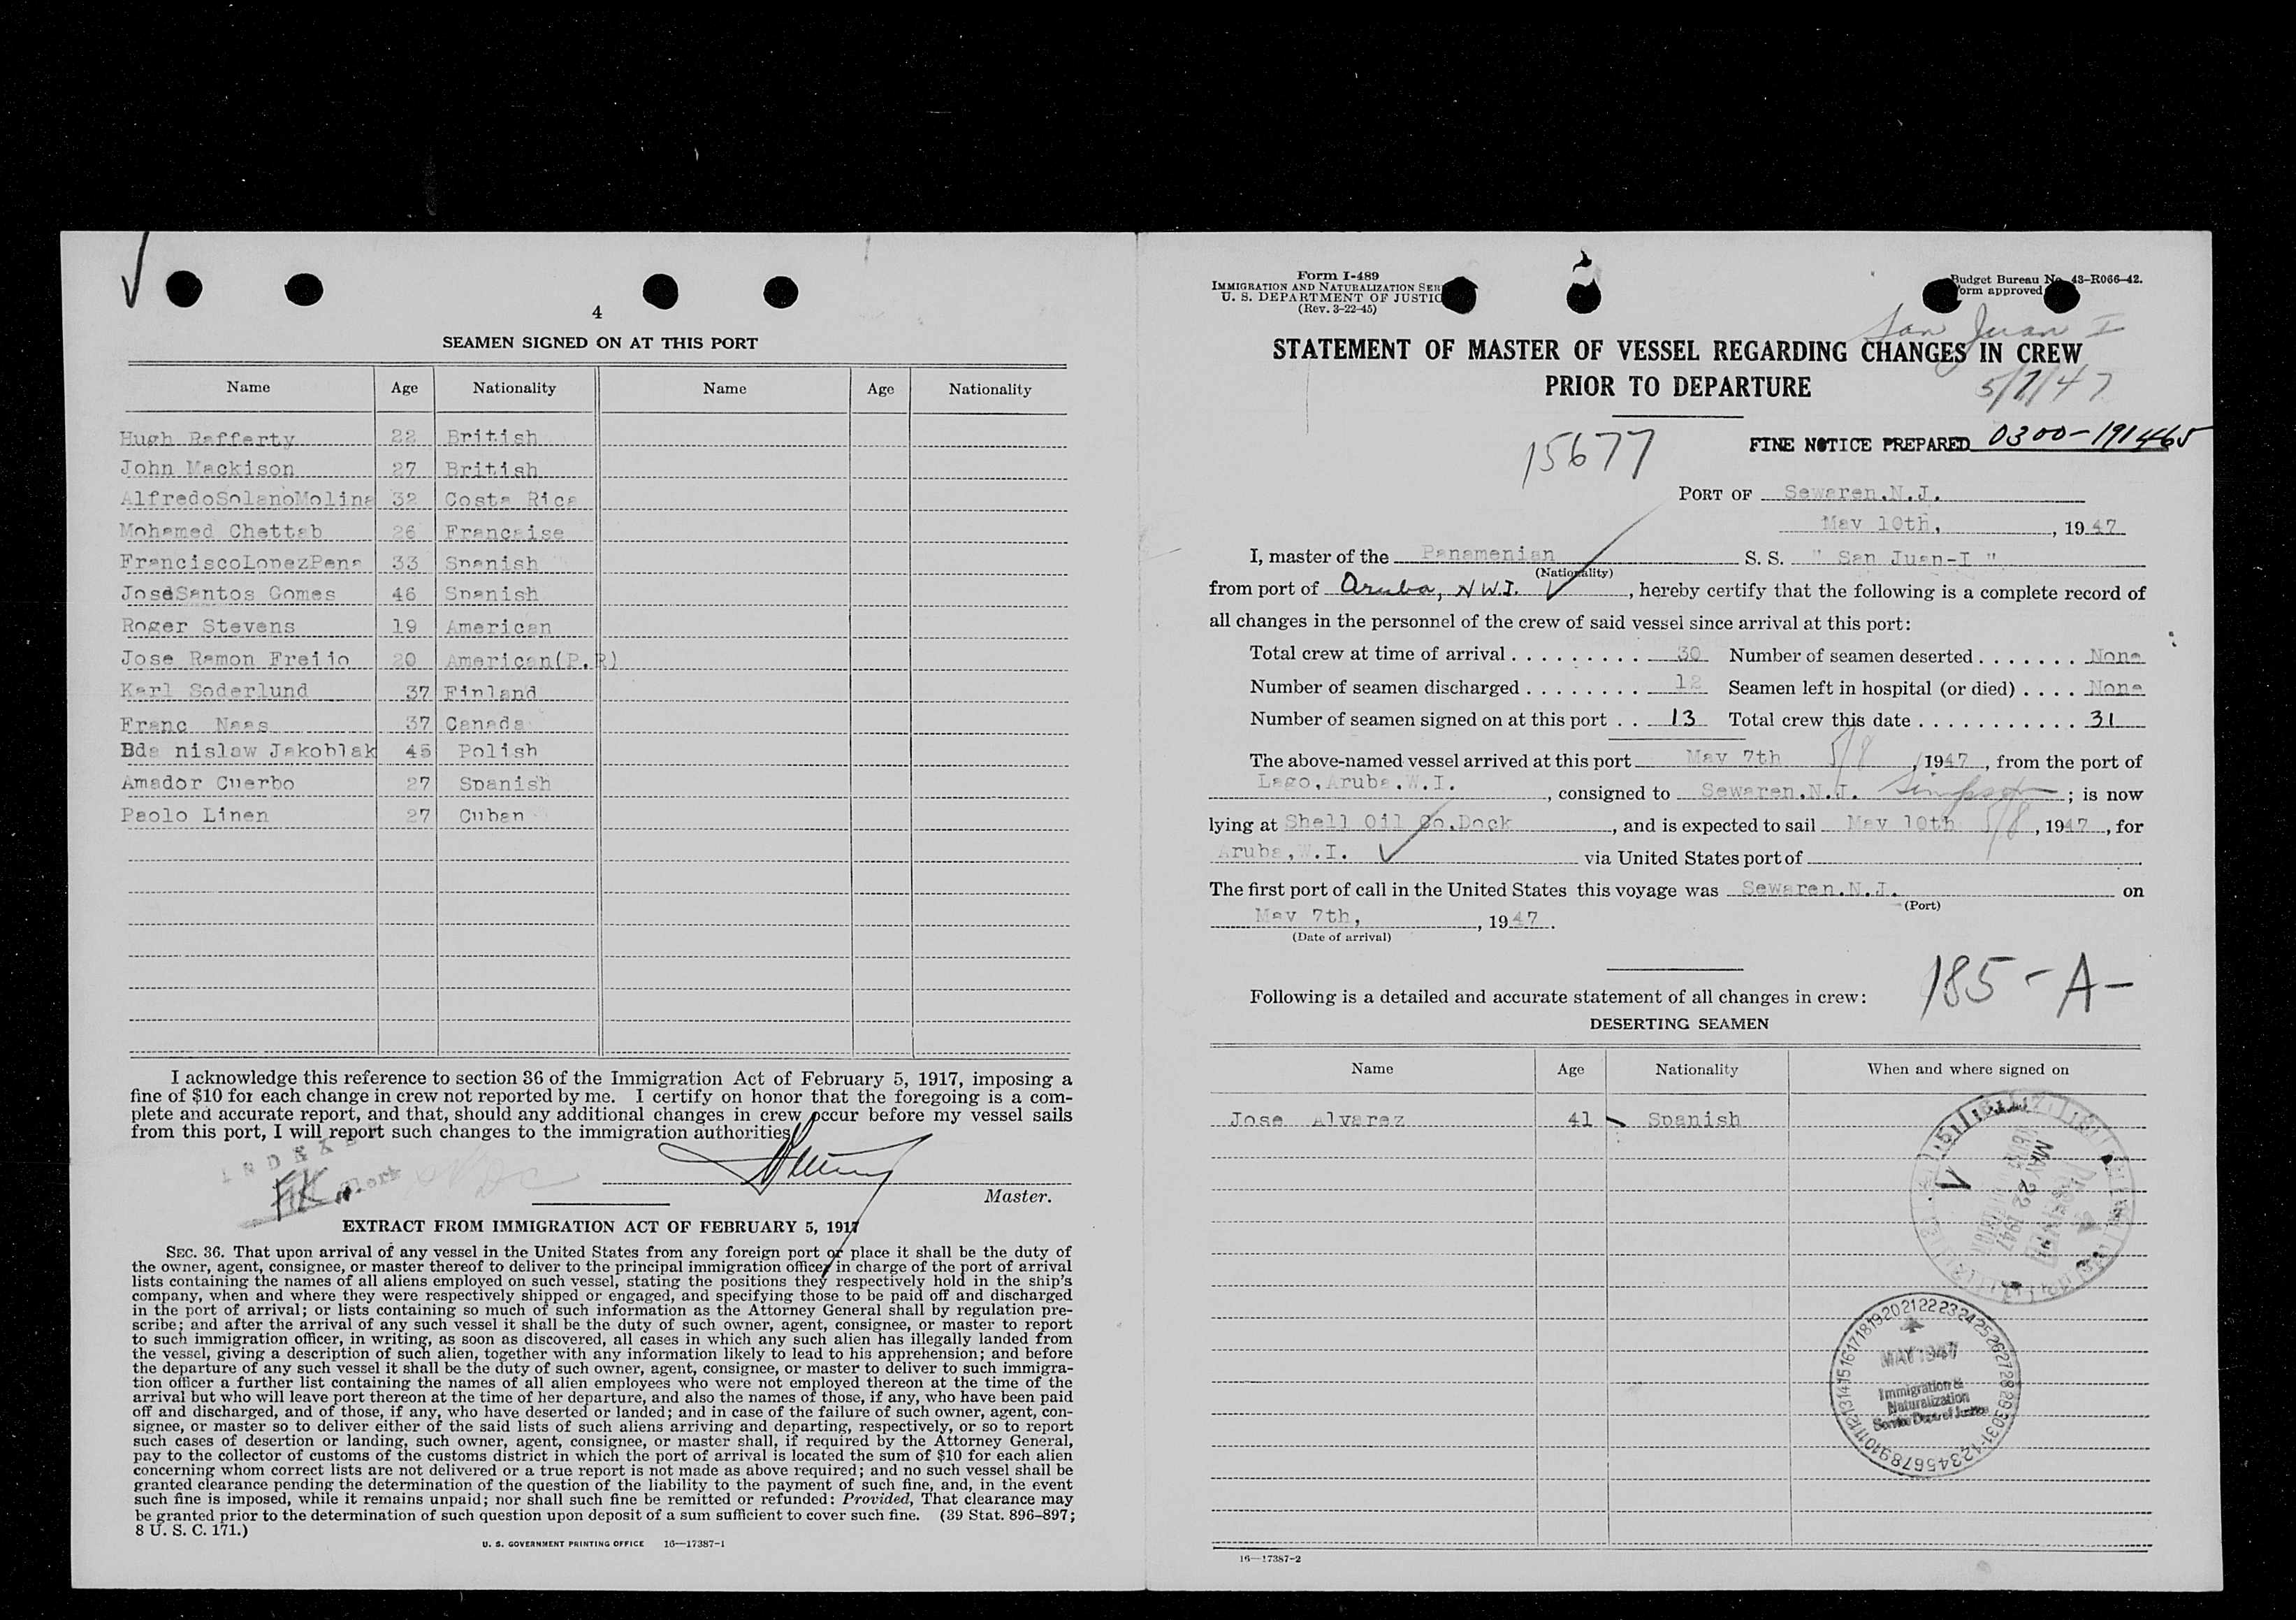 4
SEAMEN SIGNED ON AT THIS PORT
Name Age Nationality Name Age Nationality
Hugh Rafferty 22 British
John Mackison 27 British
AlfredoSolanoMolina 32 Costa Rica
Mohamed Chettab 26 Francaise
FranciscoLopezPena 33 Spanish
JoseSantos Gomes 46 Spanish
Roger Stevens 19 American
Jose Ramon Freijo 20 American(P.R)
Karl Soderlund 37 Finland
Franc Naas 37 Canada
Bda nislaw Jakoblak 45 Polish
Amador Cuerbo 27 Spanish
Paolo Linen 27 Cuban
I acknowledge this reference to section 36 of the Immigration Act of February 5, 1917, imposing a
fine of $10 for each change in crew not reported by me. I certify on honor that the foregoing is a com-
plete and accurate report, and that, should any additional changes in crew occur before my vessel sails
from this port, I will report such changes to the immigration authorities
INDEXED
FK
Master.
EXTRACT FROM IMMIGRATION ACT OF FEBRUARY 5, 1917
SEC. 36. That upon arrival of any vessel in the United States from any foreign port or place it shall be the duty of
the owner, agent, consignee, or master thereof to deliver to the principal immigration officer in charge of the port of arrival
lists containing the names of all aliens employed on such vessel, stating the positions they respectively hold in the ship's
company, when and where they were respectively shipped or engaged, and specifying those to be paid off and discharged
in the port of arrival; or lists containing so much of such information as the Attorney General shall by regulation pre-
scribe; and after the arrival of any such vessel it shall be the duty of such owner, agent, consignee, or master to report
to such immigration officer, in writing, as soon as discovered, all cases in which any such alien has illegally landed from
the vessel, giving a description of such alien, together with any information likely to lead to his apprehension; and before
the departure of any such vessel it shall be the duty of such owner, agent, consignee, or master to deliver to such immigra-
tion officer a further list containing the names of all alien employees who were not employed thereon at the time of the
arrival but who will leave port thereon at the time of her departure, and also the names of those, if any, who have been paid
off and discharged, and of those, if any, who have deserted or landed; and in case of the failure of such owner, agent, con-
signee, or master so to deliver either of the said lists of such aliens arriving and departing, respectively, or so to report
such cases of desertion or landing, such owner, agent, consignee, or master shall, if required by the Attorney General,
pay to the collector of customs of the customs district in which the port of arrival is located the sum of $10 for each alien
concerning whom correct lists are not delivered or a true report is not made as above required; and no such vessel shall be
granted clearance pending the determination of the question of the liability to the payment of such fine, and, in the event
such fine is imposed, while it remains unpaid; nor shall such fine be remitted or refunded: Provided, That clearance may
be granted prior to the determination of such question upon deposit of a sum sufficient to cover such fine. (39 Stat. 896–897;
8 U. S. C. 171.)
U. S. GOVERNMENT PRINTING OFFICE 16—17387-1
Form I-489
IMMIGRATION AND NATURALIZATION SER
U. S. DEPARTMENT OF JUSTIC
(Rev. 3-22-45)
Budget Bureau No. 43-R066-42.
orm approved
San Juan I
STATEMENT OF MASTER OF VESSEL REGARDING CHANGES IN CREW
PRIOR TO DEPARTURE
5/7/47
15677
FINE NOTICE PREPARED 0300-191465
PORT OF Sewaren.N.J.
May 10th, , 1947
I, master of the Panamenian S. S. " San Juan-I "
(Nationality)
from port of Aruba, N.W.I. , hereby certify that the following is a complete record of
all changes in the personnel of the crew of said vessel since arrival at this port:
Total crew at time of arrival 30 Number of seamen deserted None
Number of seamen discharged 12 Seamen left in hospital (or died) None
Number of seamen signed on at this port 13 Total crew this date 31
The above-named vessel arrived at this port May 7th 5/8 , 1947 , from the port of
Lago,Aruba.W.I. , consigned to Sewaren.N.J. Simpson ; is now
lying at Shell Oil Co.Dock , and is expected to sail May 10th 5/8 , 1947 , for
Aruba,W.I. via United States port of
The first port of call in the United States this voyage was Sewaren.N.J. on
(Port)
May 7th, , 1947.
(Date of arrival)
185-A-
Following is a detailed and accurate statement of all changes in crew:
DESERTING SEAMEN
Name Age Nationality When and where signed on
Jose Alvarez 41 Spanish
MAY 22 1947
MAY 1947
Immigration &
Naturalization
Service Dept of Justice
16—17387-2